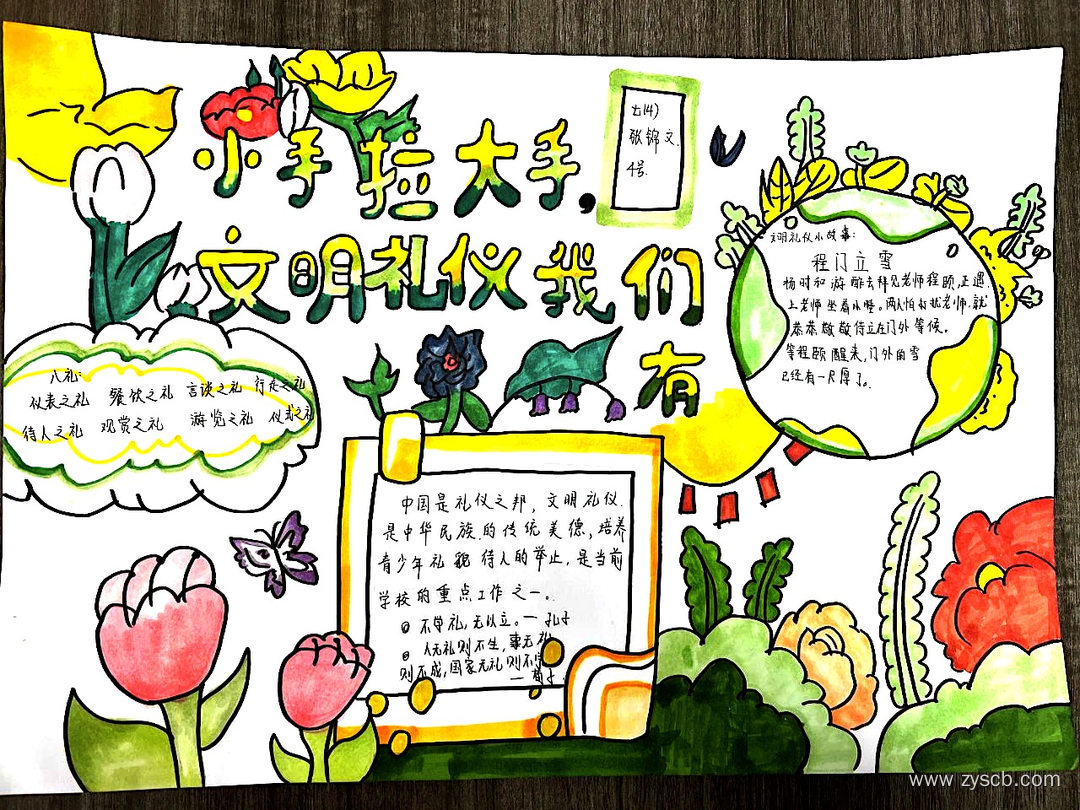 小手拉大手,
文明礼仪我们
有
七(4)
张锦文
4号.
文明礼仪小故事:
程门立雪
杨时和游酢去拜见老师程颐,正遇
上老师坐着小睡。两人怕打扰老师,就
恭恭敬敬侍立在门外等候。
等程颐醒来,门外的雪
已经有一尺厚了。
八礼:
仪表之礼 餐饮之礼 言谈之礼 行走之礼
待人之礼 观赏之礼 游览之礼 仪式之礼
中国是礼仪之邦,文明礼仪
是中华民族的传统美德,培养
青少年礼貌待人的举止,是当前
学校的重点工作之一。
不学礼,无以立。一孔子
人无礼则不生,事无礼
则不成,国家无礼则不宁
一荀子
www.zyscb.com